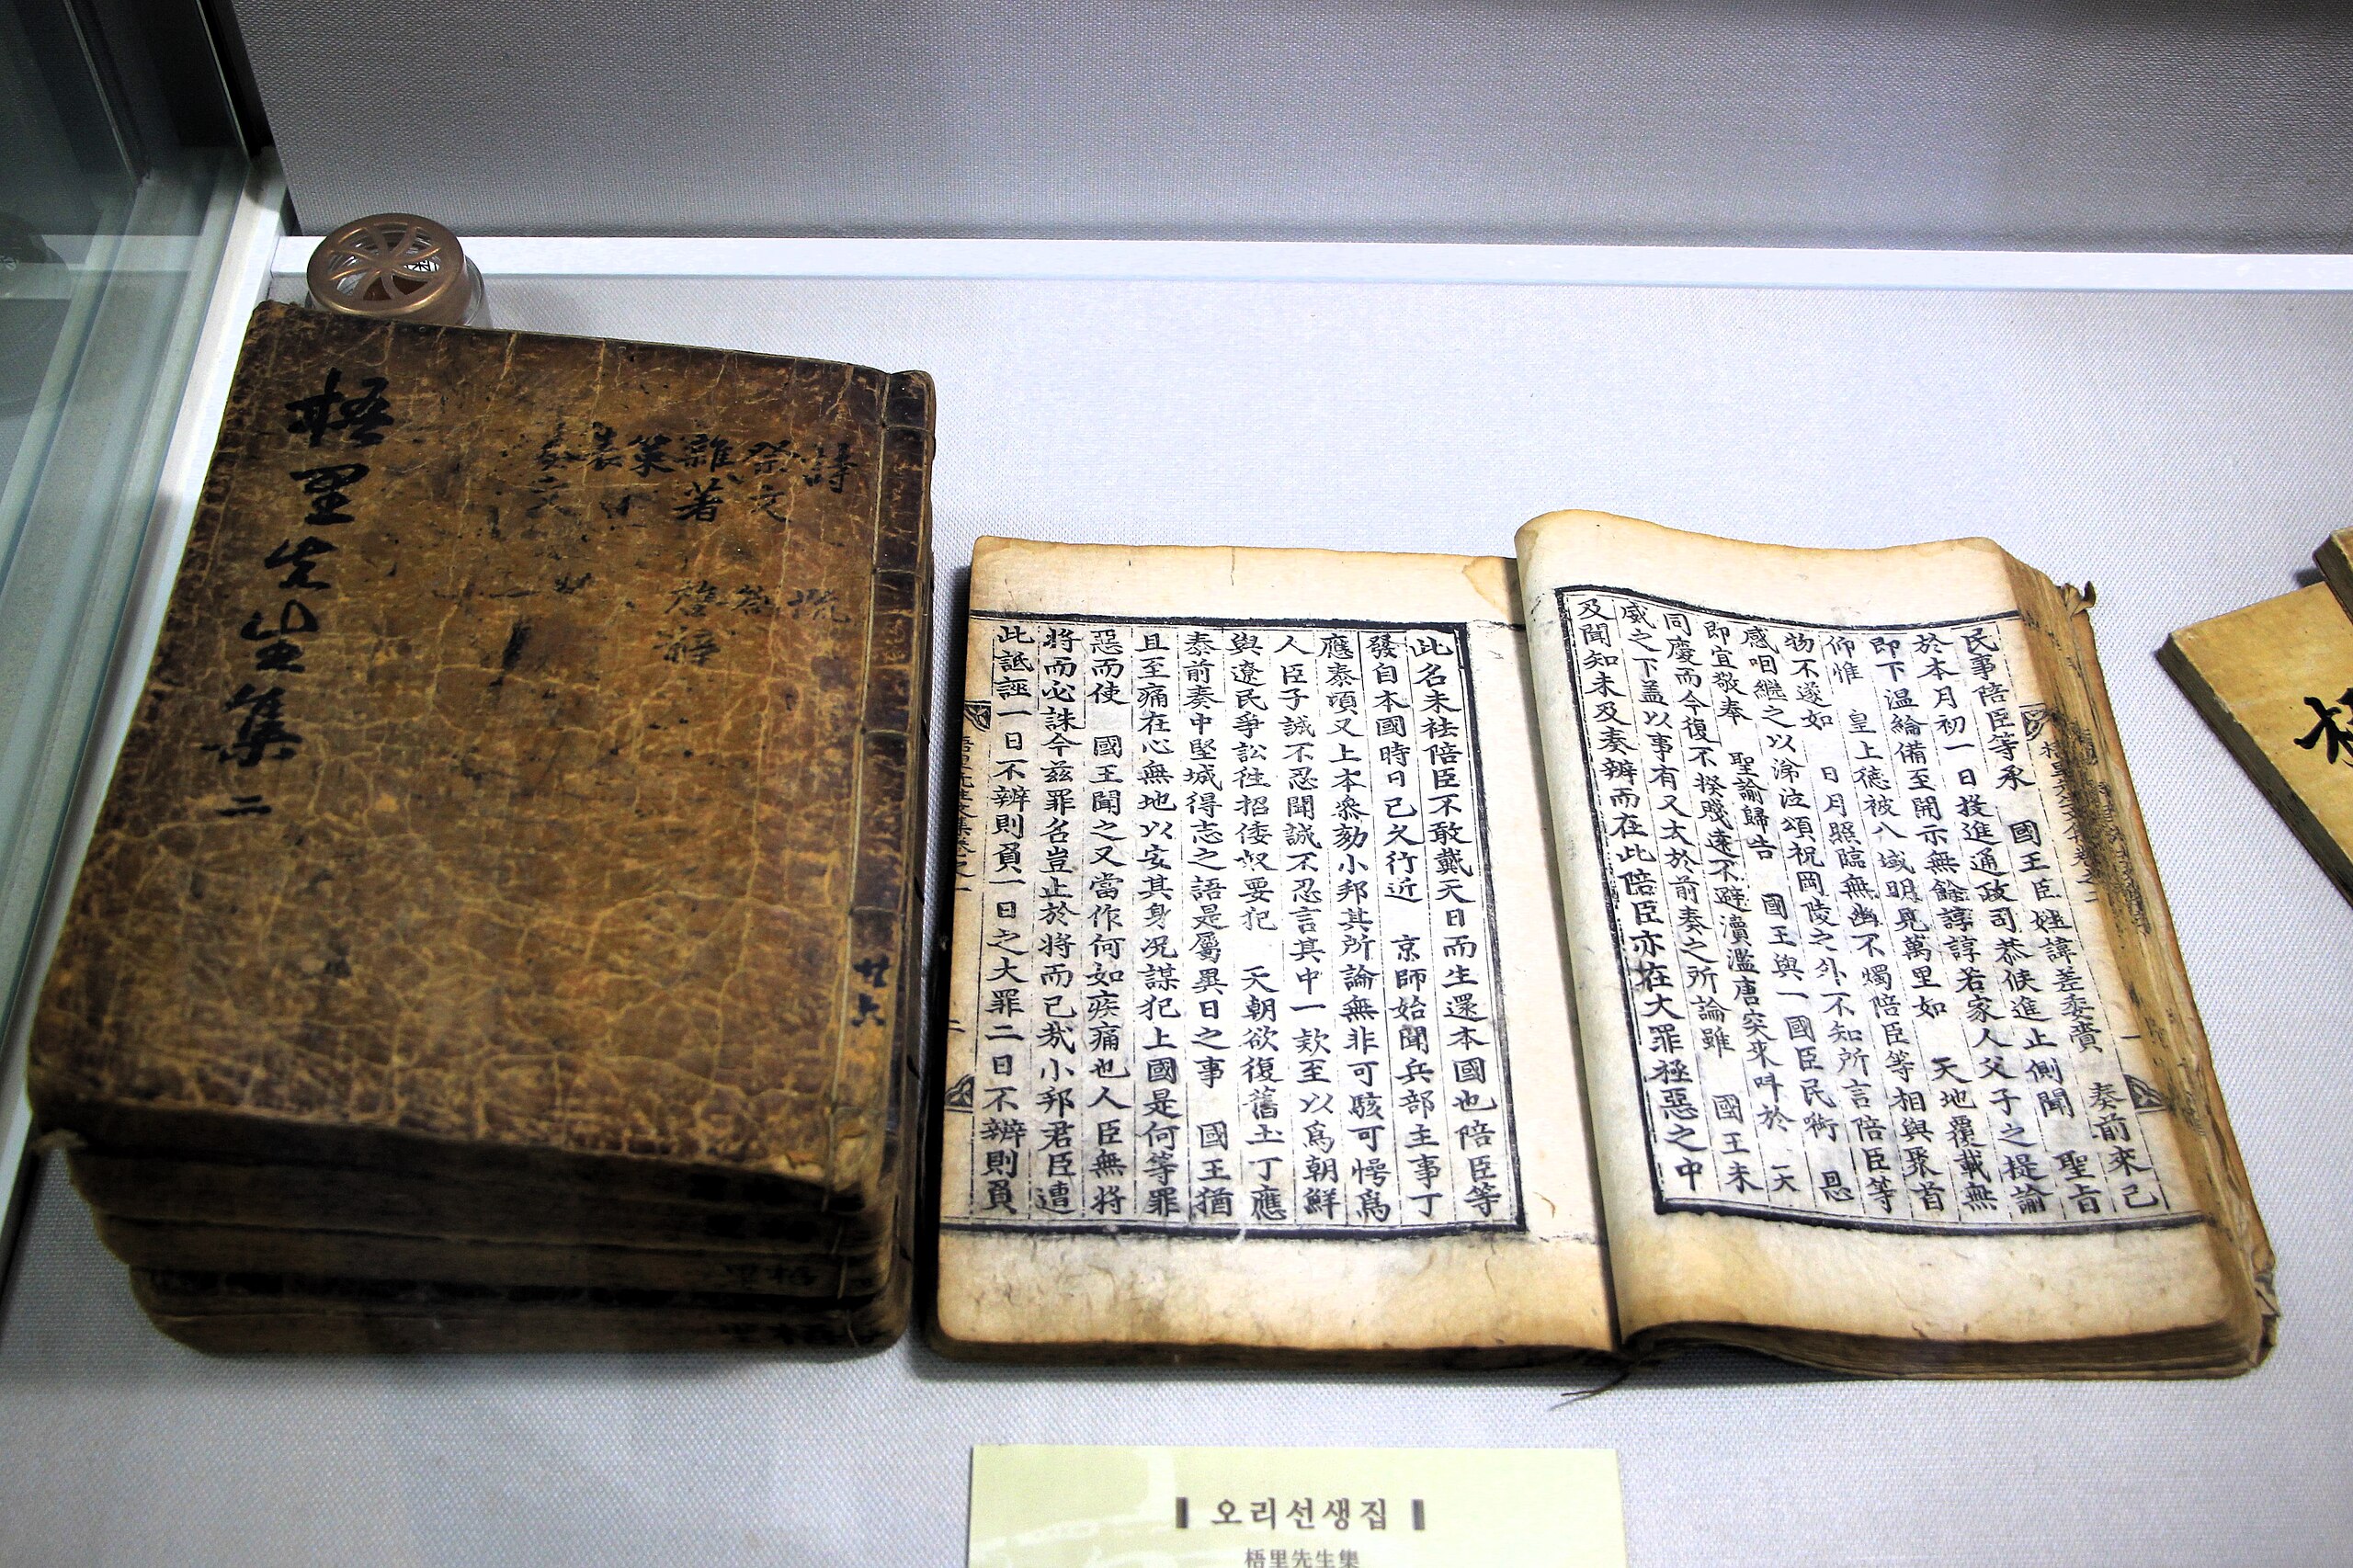 梧里先生集 二
詩
祭文
雜著
策
奏文
廿六
民事陪臣等承 國王臣姓諱差委賫 奏前來已
於本月初一日投進通政司恭候進止側聞 聖旨
即下溫綸備至開示無餘諄諄若家人父子之提諭
仰惟 皇上德被八域明見萬里如 天地覆載無
物不遂如 日月照臨無幽不燭陪臣等相與聚首
感咽繼之以涕泣頌祝岡陵之外不知所言陪臣等
即宜敬奉 聖諭歸告 國王與一國臣民銜 恩
同慶而今復不揆賤遠不避瀆濫唐突來呼於 天
威之下盖以事有又大於前奏之所論雖 國王未
及聞知未及奏辨而在此陪臣亦在大罪極惡之中
此名未祛陪臣不敢戴天日而生還本國也陪臣等
發自本國時日已久行近 京師始聞兵部主事丁
應泰頃又上本叅劾小邦其所論無非可駭可愕爲
人臣子誠不忍聞誠不忍言其中一欵至以爲朝鮮
與遼民爭訟徃招倭奴要犯 天朝欲復舊土丁應
泰前奏中堅城得志之語是屬異日之事 國王猶
且至痛在心無地以安其身况謀犯上國是何等罪
惡而使 國王聞之又當作何如疾痛也人臣無將
將而必誅今兹罪名豈止於將而已哉小邦君臣遭
此詆誣一日不辨則負一日之大罪二日不辨則負
오리선생집
梧里先生集